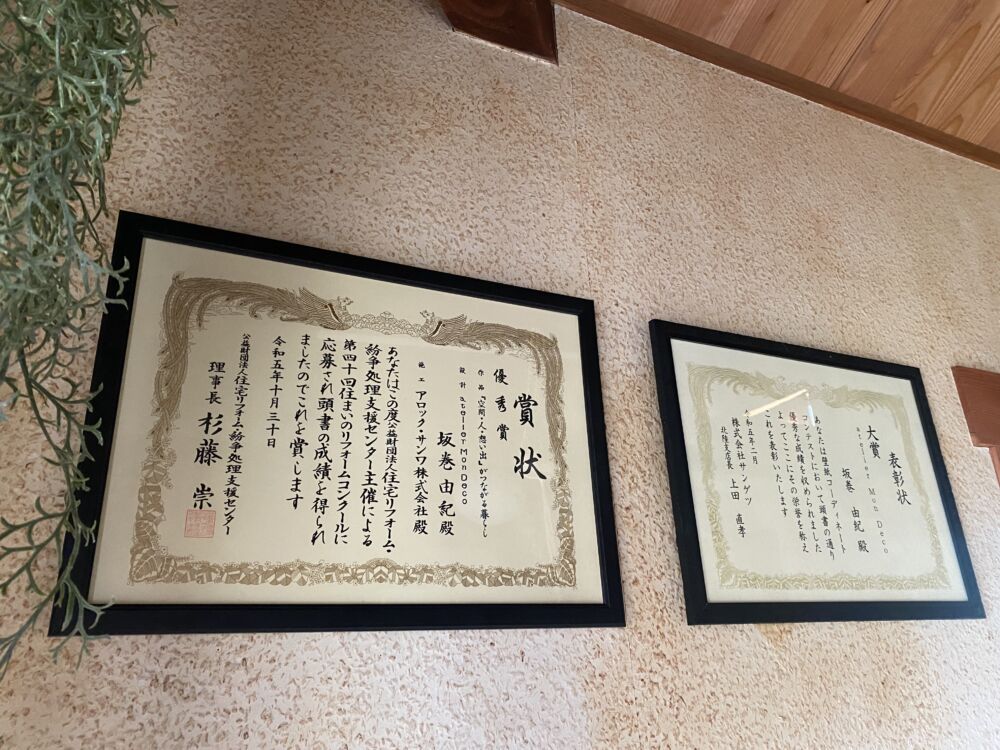 賞状
優秀賞
作品 「空間・人・想い出」がつながる暮らし
設計 atelier Mon Deco
坂巻由紀殿
施工 アロック・サンワ株式会社殿
あなたはこの度公益財団法人住宅リフォーム・
紛争処理支援センター主催による
第四十回住まいのリフォームコンクールに
応募され頭書の成績を得られ
ましたのでこれを賞します
令和五年十月三十日
公益財団法人住宅リフォーム・紛争処理支援センター
理事長 杉藤 崇
表彰状
大賞
atelier Mon Deco
坂巻 由紀 殿
あなたは壁紙コーディネート
コンテストにおいて頭書の通り
優秀な成績を収められました
よってここにその栄誉を称え
これを表彰いたします
令和五年二月
株式会社サンゲツ
北陸支店長 上田 直孝